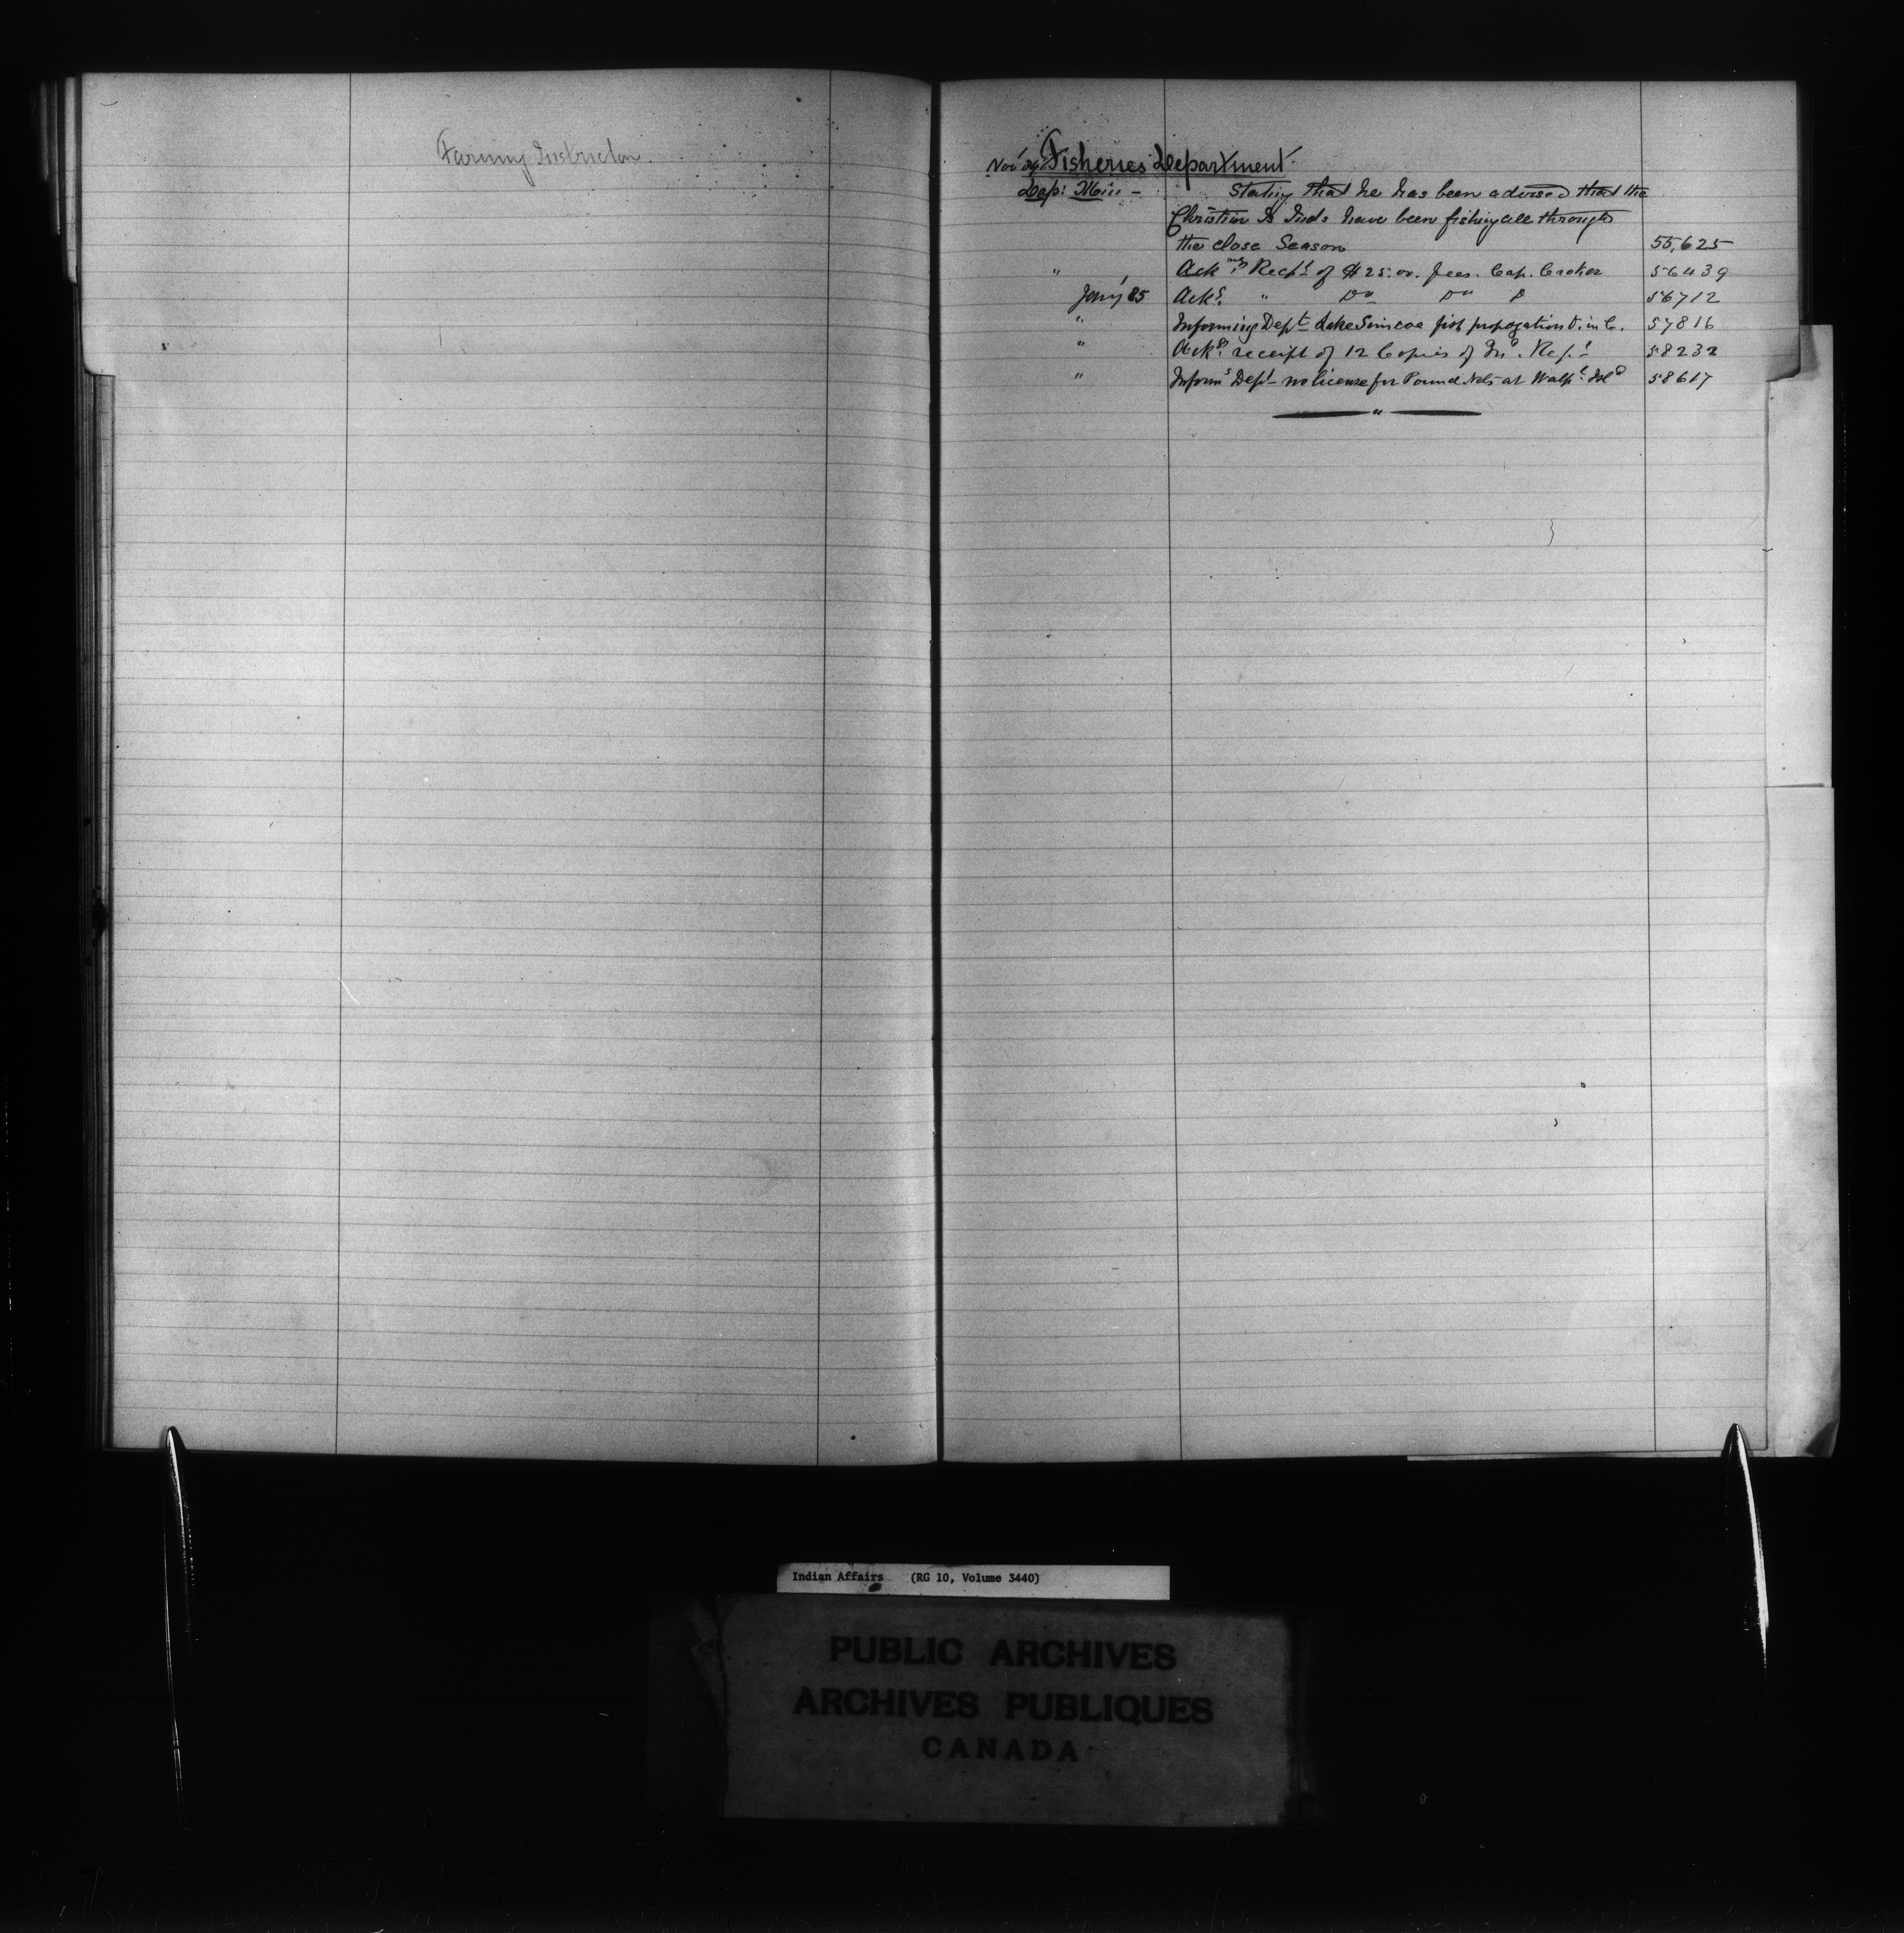 Farming Instructor.
Nov 84 Fisheries Department.
Dep: Min - Stating that he has been advised that the
Christian Is Inds have been fishing all through
the close Season 55,625
" Ack Recpt of $25.00. fees. Cap. 56439
Jany 85 Ackg " Do Do D 56712
" Informing Dept Lake Simcoe fish propogation 57816
" Ackg receipt of 12 Copies of Rept 58232
" Informg Dept no license for Pound Nets at Walpl Isld 58617
"
Indian Affairs (RG 10, Volume 3440)
PUBLIC ARCHIVES
ARCHIVES PUBLIQUES
CANADA